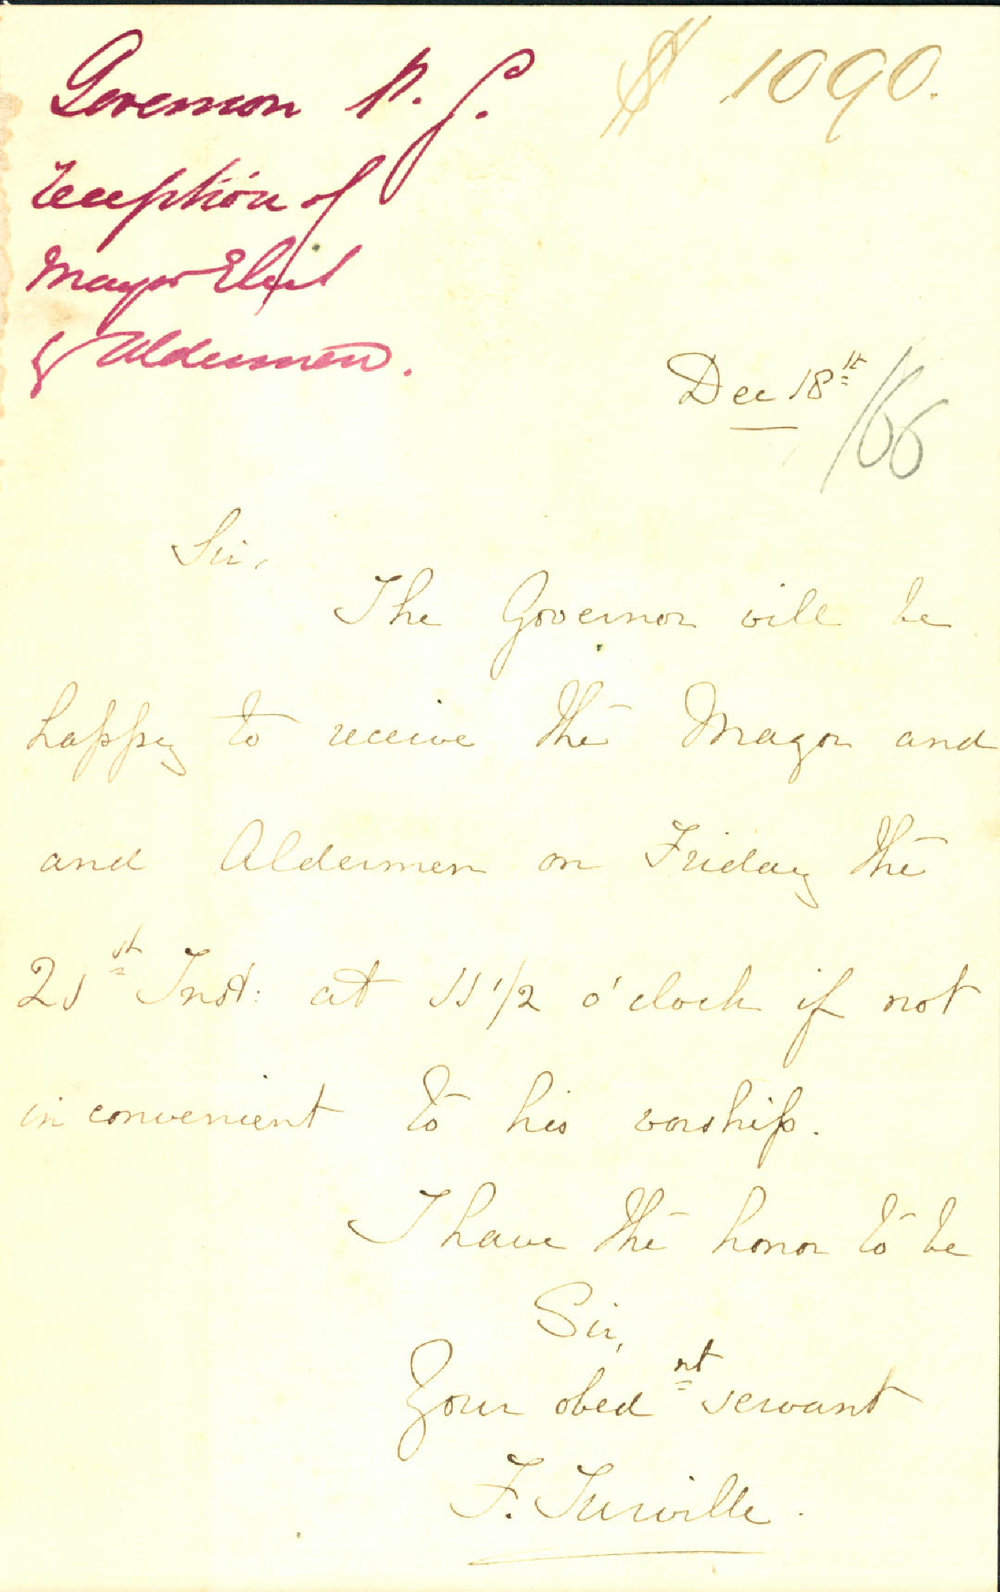 Governor N. Z.
reception of
Mayor Elect
& Aldermen.
1090.
Dec 18th /66
Sir,
The Governor will be
happy to receive the Mayor and
and Aldermen on Friday the
21st Inst: at 11 1/2 o'clock if not
inconvenient to his worship.
I have the honor to be
Sir,
Your obednt servant
F. Turville.